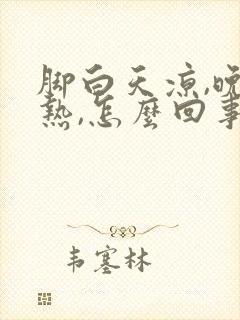 脚白天凉,晚
热,怎麼回事
韦塞林